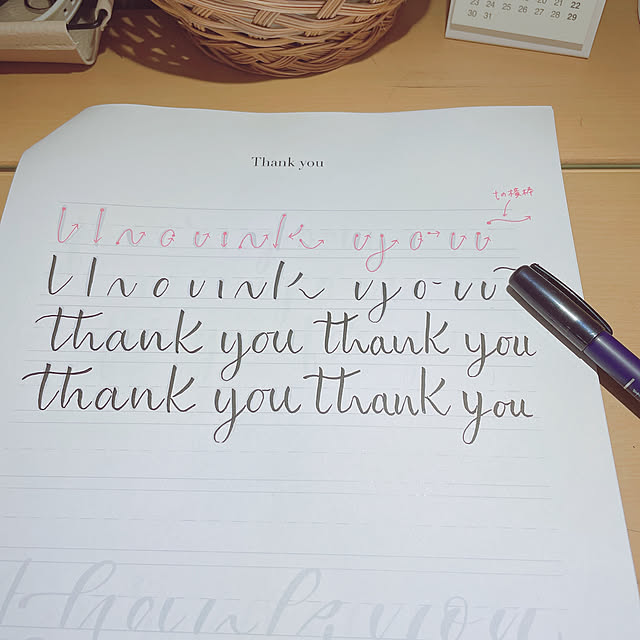 23 24 25 26 27 28 22
30 31 29
Thank you
tの横棒
thank you thank you
thank you thank you
Thank you